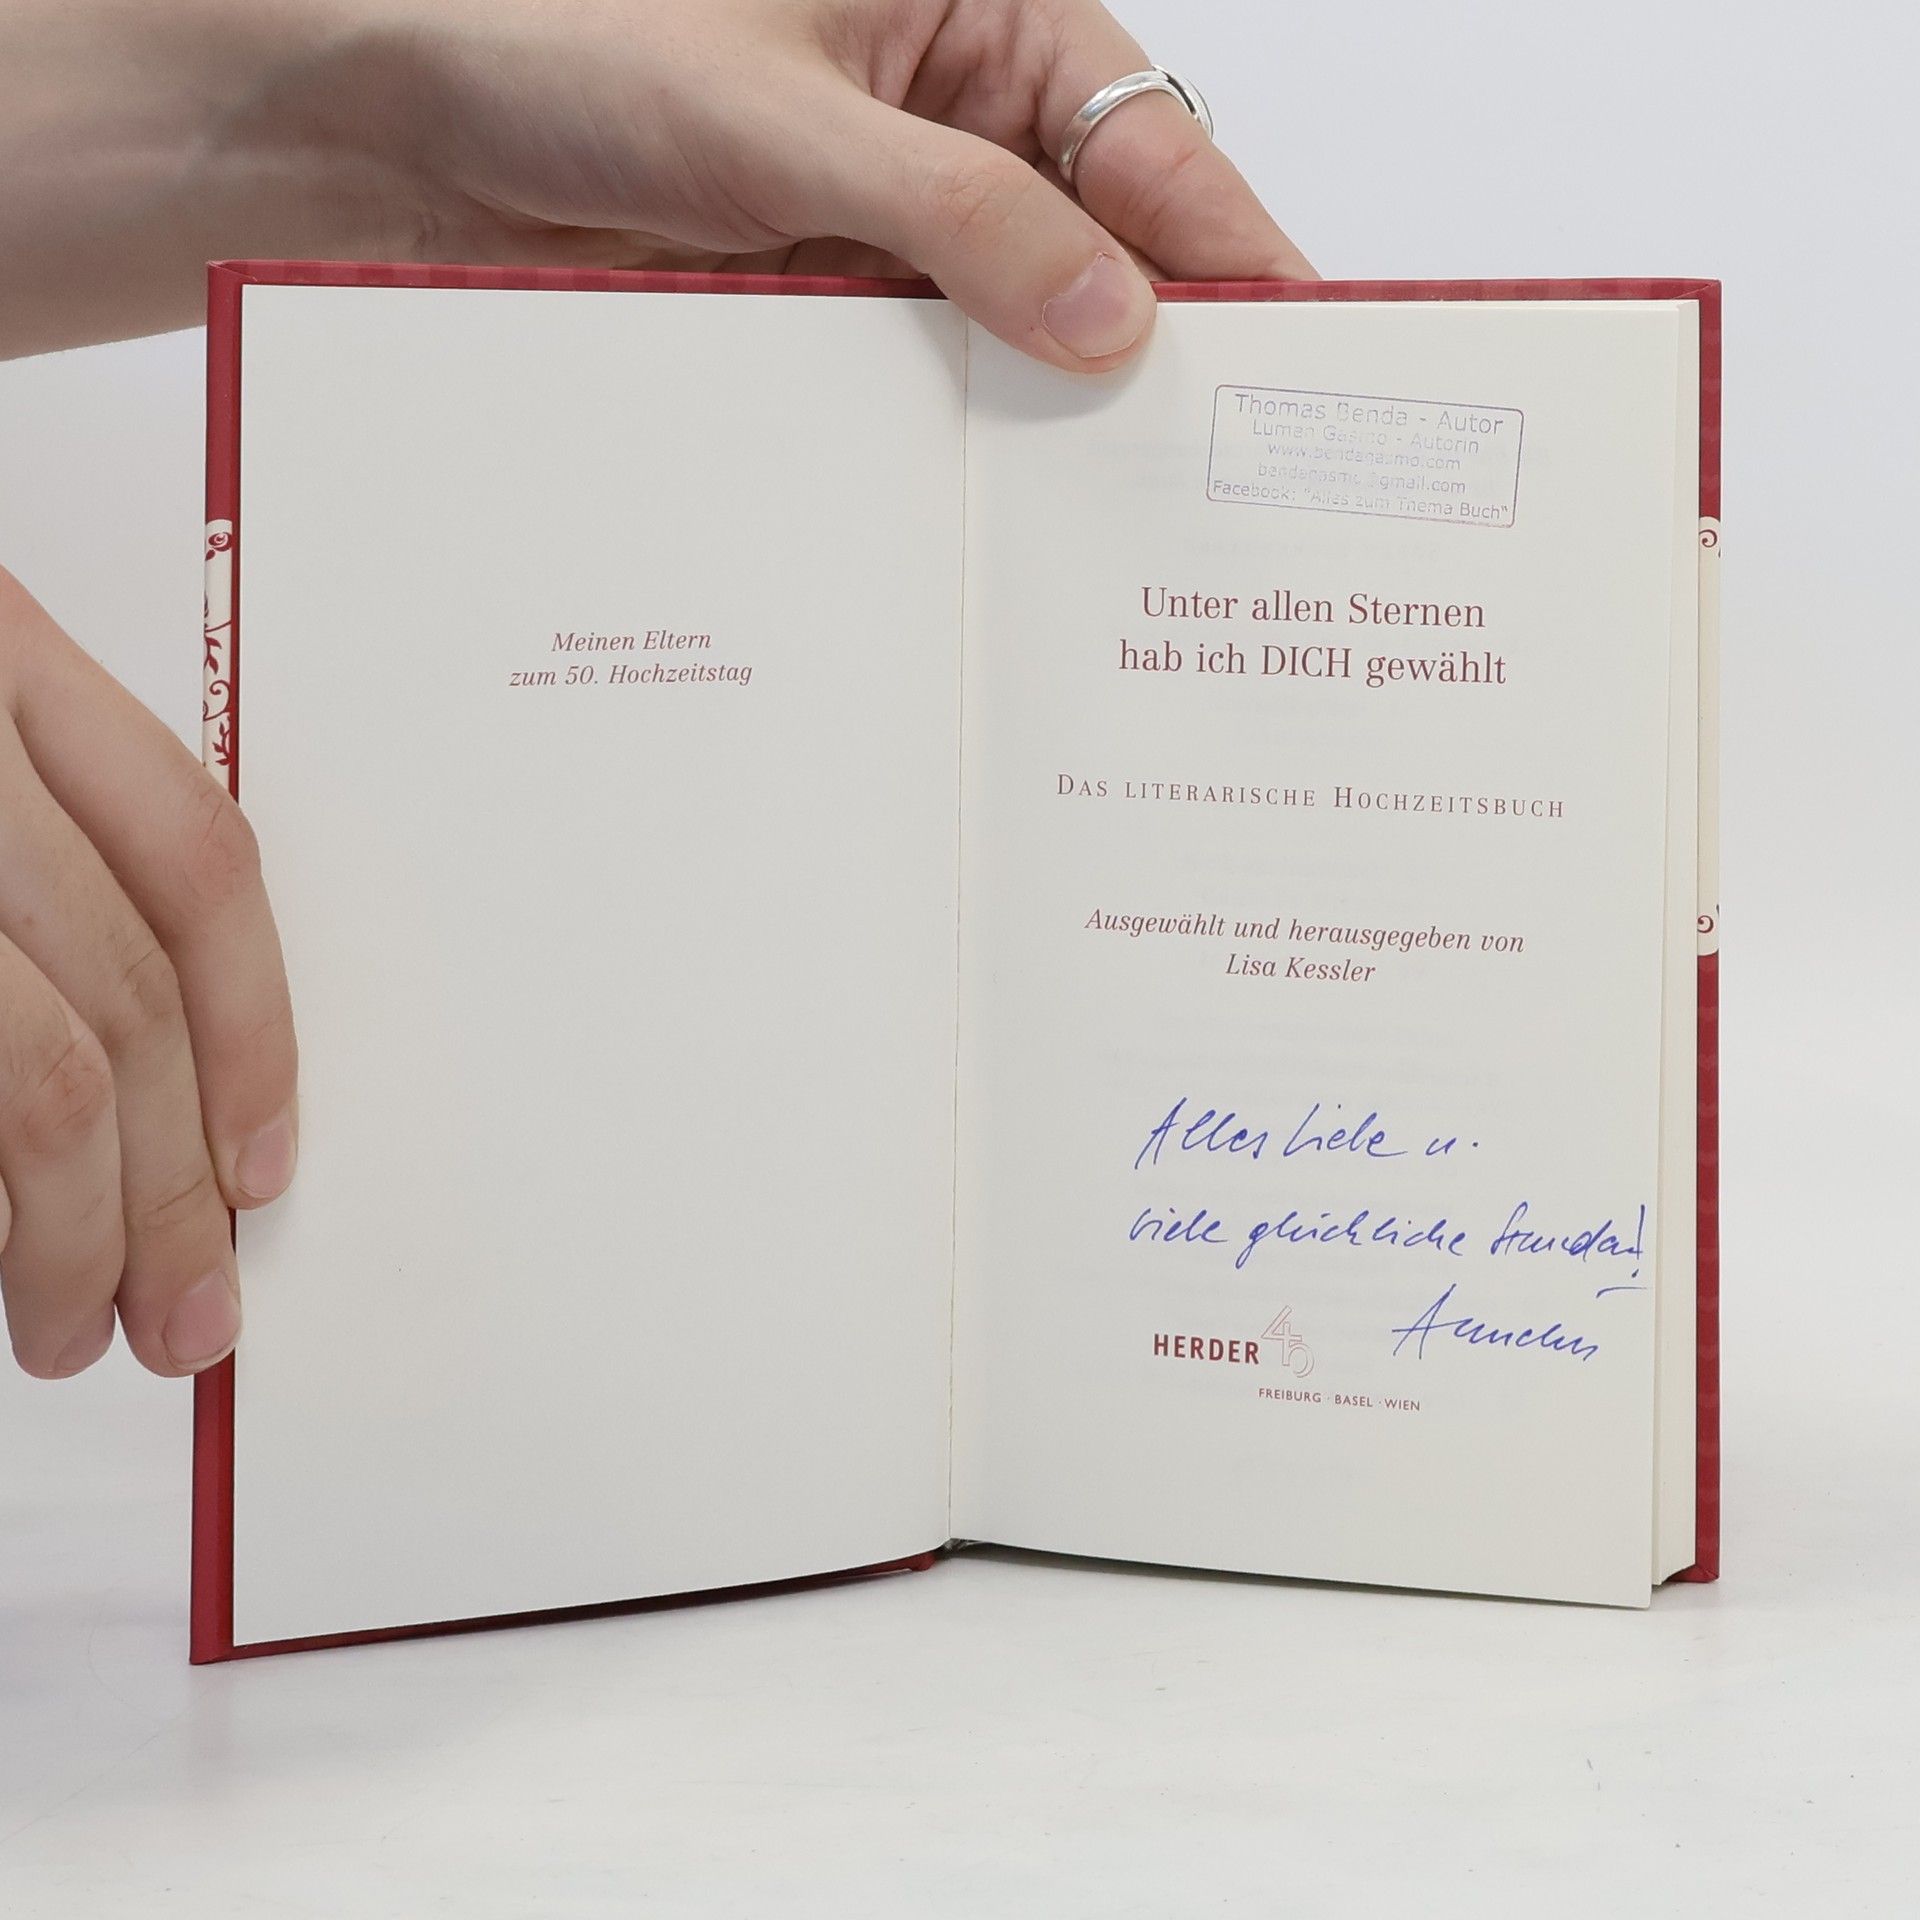 Meinen Eltern
zum 50. Hochzeitstag
Thomas Benda - Autor
Luman Gasmo - Autorin
www.bendagasmo.com
bendagasmo@gmail.com
Facebook: "Alles zum Thema Buch"
Unter allen Sternen
hab ich DICH gewählt
DAS LITERARISCHE HOCHZEITSBUCH
Ausgewählt und herausgegeben von
Lisa Kessler
Alles Liebe u.
viele glückliche Stunden!
HERDER
FREIBURG · BASEL · WIEN